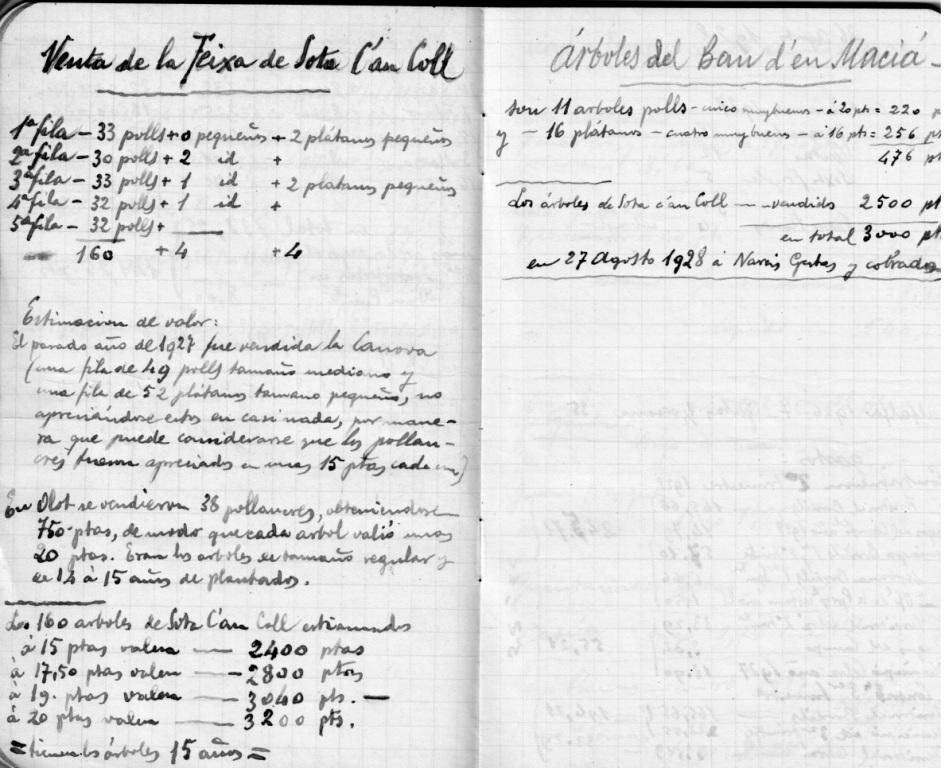 Venta de la Feixa de Sota C'an Coll
1ª fila - 33 polls + 0 pequeños + 2 plátanos pequeños
2ª fila - 30 polls + 2 id +
3ª fila - 33 polls + 1 id + 2 platanos pequeños
4ª fila - 32 polls + 1 id +
5ª fila - 32 polls +
160 + 4 + 4
Estimacion de valor:
El pasado año de 1927 fue vendida la Canova
(una fila de 49 polls tamaño mediano y
una fila de 52 plátanos tamaño pequeño, no
apreciándose estos en casi nada, por mane-
ra que puede considerarse que los pollan-
cres fueron apreciados en unas 15 ptas cada uno)
En Olot se vendieron 38 pollancres, obteniendose
750 ptas, de modo que cada arbol valió unas
20 ptas. Eran los arboles en tamaño regular y
en 14 à 15 años de plantados.
Los 160 arboles de Sota C'an Coll estimandos
à 15 ptas valen — 2400 ptas
à 17,50 ptas valen — 2800 ptas
à 19 ptas valen — 3040 pts. —
à 20 ptas valen — 3200 pts.
= tienen los árboles 15 años =
árboles del Ban d'en Maciá -
son 11 arboles polls - cinco muy buenos - à 20 pts = 220 p
y - 16 plátanos - cuatro muy buenos - à 16 pts = 256 pt
476 pt
Los árboles de Sota c'an Coll — vendidos 2500 pt
en total 3000 pt
en 27 Agosto 1928 à Narcís y cobrados